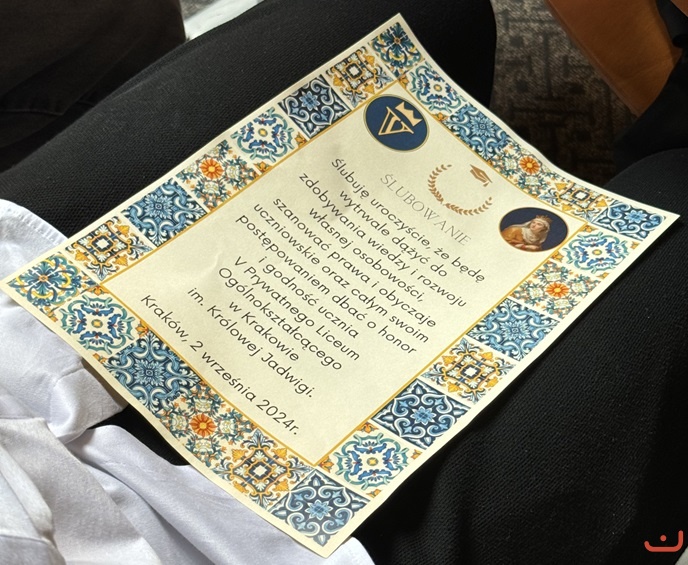 ŚLUBOWANIE
Ślubuję uroczyście, że będę
wytrwale dążyć do
zdobywania wiedzy i rozwoju
własnej osobowości,
szanować prawa i obyczaje
uczniowskie oraz całym swoim
postępowaniem dbać o honor
i godność ucznia
V Prywatnego Liceum
Ogólnokształcącego
w Krakowie
im. Królowej Jadwigi.
Kraków, 2 września 2024r.